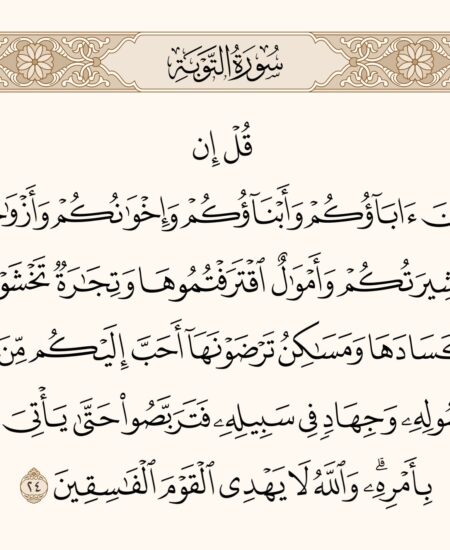 سُورَةُ التَّوْبَةِ
قُلْ إِن
نَ ءَابَآؤُكُمْ وَأَبْنَآؤُكُمْ وَإِخْوَٰنُكُمْ وَأَزْوَٰ
شِيرَتُكُمْ وَأَمْوَٰلٌ ٱقْتَرَفْتُمُوهَا وَتِجَٰرَةٌ تَخْشَوْ
كَسَادَهَا وَمَسَٰكِنُ تَرْضَوْنَهَآ أَحَبَّ إِلَيْكُم مِّنَ
سُولِهِۦ وَجِهَادٍ فِى سَبِيلِهِۦ فَتَرَبَّصُوا۟ حَتَّىٰ يَأْتِىَ
بِأَمْرِهِۦ ۗ وَٱللَّهُ لَا يَهْدِى ٱلْقَوْمَ ٱلْفَٰسِقِينَ ٢٤